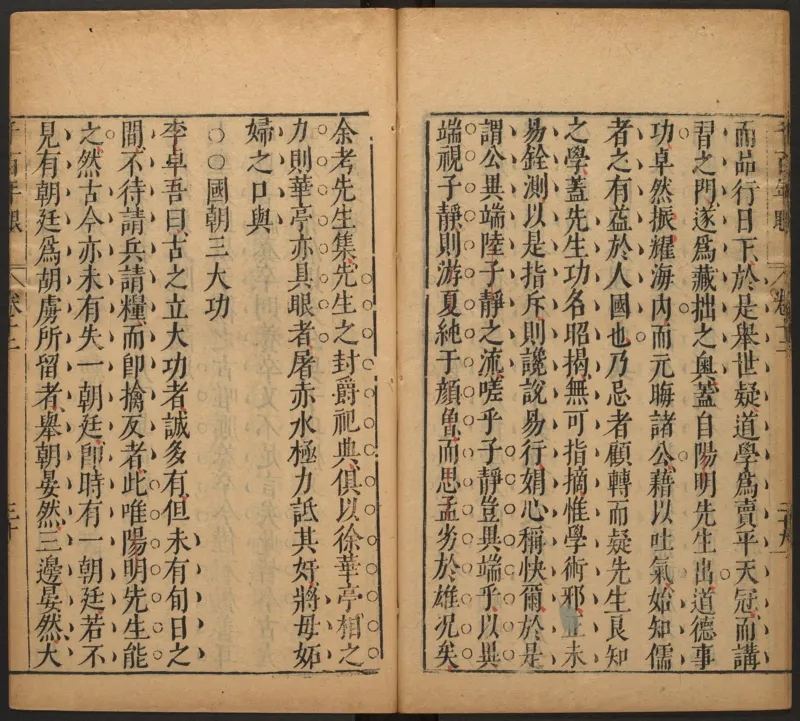 而品行日下於是舉世疑道學爲賣平天冠而講
習之門遂爲藏拙之奥蓋自陽明先生出道德事
功卓然振耀海内而元晦諸公藉以吐氣始知儒
者之有益於人國也乃忌者顧轉而疑先生良知
之學蓋先生功名昭揭無可指摘惟學術邪正未
易銓測以是指斥則讒說易行娼心稱快爾於是
謂公異端陸子靜之流嗟乎子靜豈異端乎以異
端視子靜則游夏純于顔魯而思孟劣於雄况矣
余考先生集先生之封爵祀典俱以徐華亭相之
力則華亭亦具眼者屠赤水極力詆其奸將毋妬
婦之口與
○○國朝三大功
李卓吾曰古之立大功者誠多有但未有旬日之
間不待請兵請糧而卽擒反者此唯陽明先生能
之然古今亦未有失一朝廷卽時有一朝廷若不
見有朝廷爲胡虜所留者舉朝晏然三邊晏然大
卷十二
三十